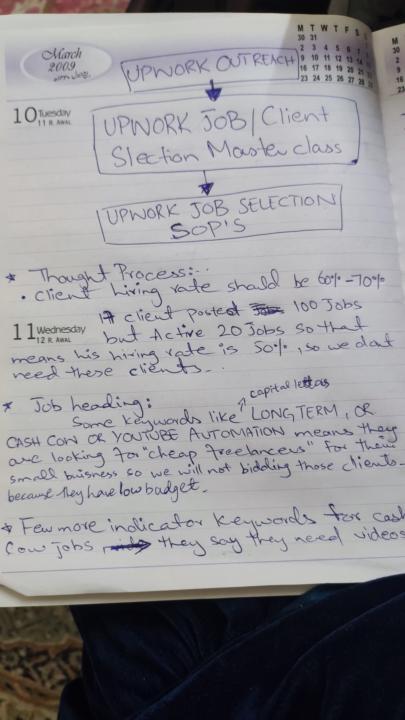 March
2009
M T W T F S S
30 31
2 3 4 5 6 7
9 10 11 12 13 14
16 17 18 19 20 21
23 24 25 26 27 28
UPWORK OUTREACH
10 Tuesday
11 R. AWAL
UPWORK JOB / Client
Slection Masterclass
UPWORK JOB SELECTION
SOP'S
* Thought Process:-
• client hiring rate should be 60% - 70%
If client posted 100 Jobs
11 Wednesday
12 R. AWAL
but Active 20 Jobs so that
means his hiring rate is 50%, so we dont
need these clients.
capital letters
* Job heading:
Some keywords like "LONG TERM, OR
CASH COW OR YOUTUBE AUTOMATION means they
are looking for "cheap freelancers" for their
small buisness so we will not bidding those clients
because they have low budget.
* Few more indicator keywords for cash
Cow jobs they say they need videos